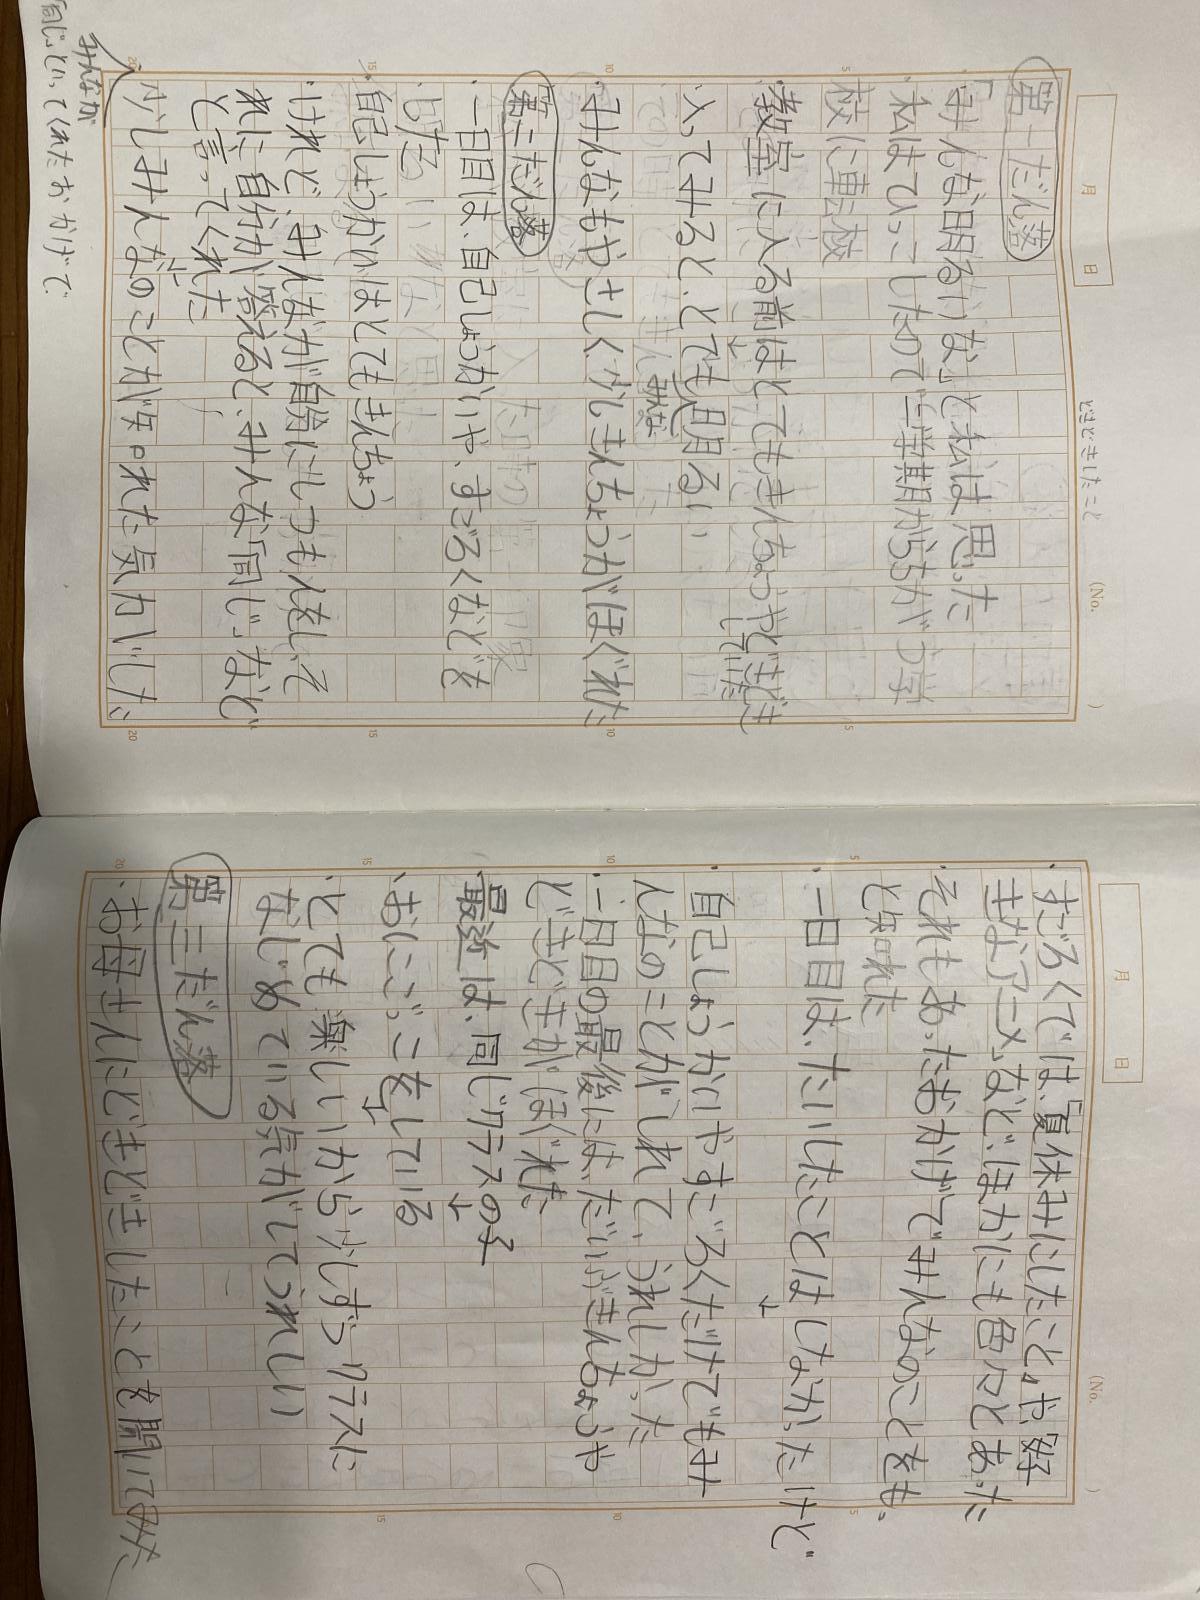 どきどきしたこと
月
日
(No.
)
第一だん落
「みんな明るいな」と私は思った
私はひっこしたので二学期からちがう学
校に転校
教室に入る前はとてもきんちょうやどきどき
していた
入ってみると、とても明るい
みんな
みんなもやさしく少しきんちょうがほぐれた
第二だん落
・一日目は、自己しょうかいや、すごろくなどを
した
自己しょうかいはとてもきんちょう
・けれど、みんなが自分にしつもんをして
れに自分が答えると、みんな「同じ」など
と言ってくれた
少しみんなのことが知れた気がした
みんなが
同じといってくれたおかげで
5
10
15
20
月
日
(No.
)
・すごろくでは、「夏休みにしたこと」や、「好
きなアニメ」など、ほかにも色々とあった
それもあったおかげでみんなのことをも。
と知れた
・一日目は、たいしたことはしなかったけど
・自己しょうかいやすごろくだけでもみ
んなのことがしれて、うれしかった
・一日目の最後には、だいぶきんちょうや
どきどきがほぐれた
・最近は、同じクラスの子
おにごっこをしている
・とても楽しいから少しずつクラスに
なじめている気がしてうれしい
第三だん落
・お母さんにどきどきしたことを聞いてみた
5
10
15
20